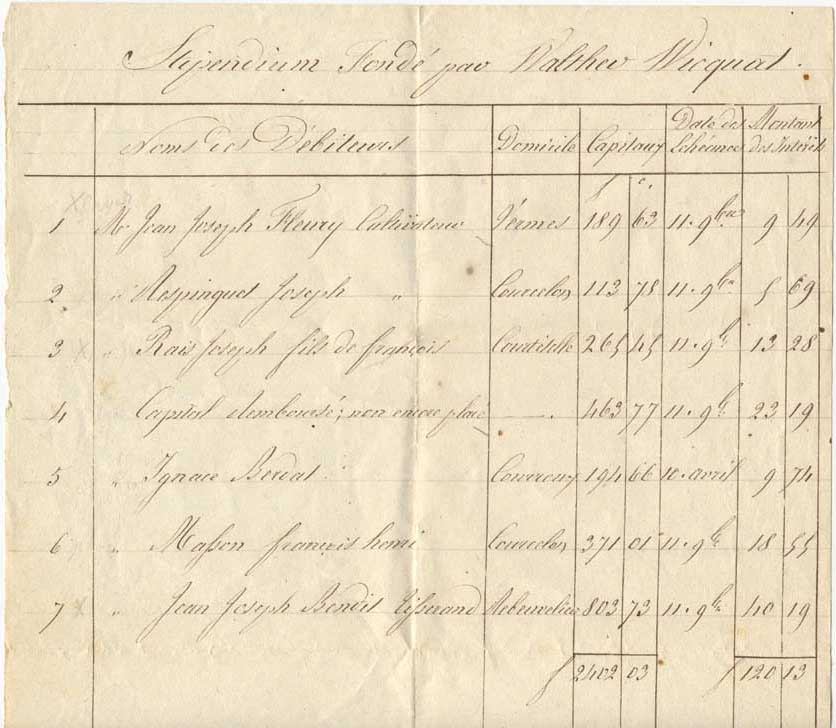 Stipendium Fondé par Walther Wicquat.
Noms des Débiteurs Domicile Capitaux Date des Echéances Montant des Intérêts
f c.
1 Mr Jean Joseph Fleury Cultivateur Vermes 189 63 11. 9bre 9 49
2 " Respinguet Joseph " Courcelon 113 78 11. 9bre 5 69
3 " Rais Joseph fils de françois Courtételle 265 45 11. 9bre 13 28
4 Capital remboursé; non encore placé —. 463 77 11. 9bre 23 19
5 " Ignace Berdat. Courroux 194 66 10. avril 9 74
6 " Masson françois henri Courcelon 371 01 11. 9bre 18 55
7 " Jean Joseph Bendit Tisserand Rebeuvelier 803 73 11. 9bre 40 19
f 2402 03 f 120 13